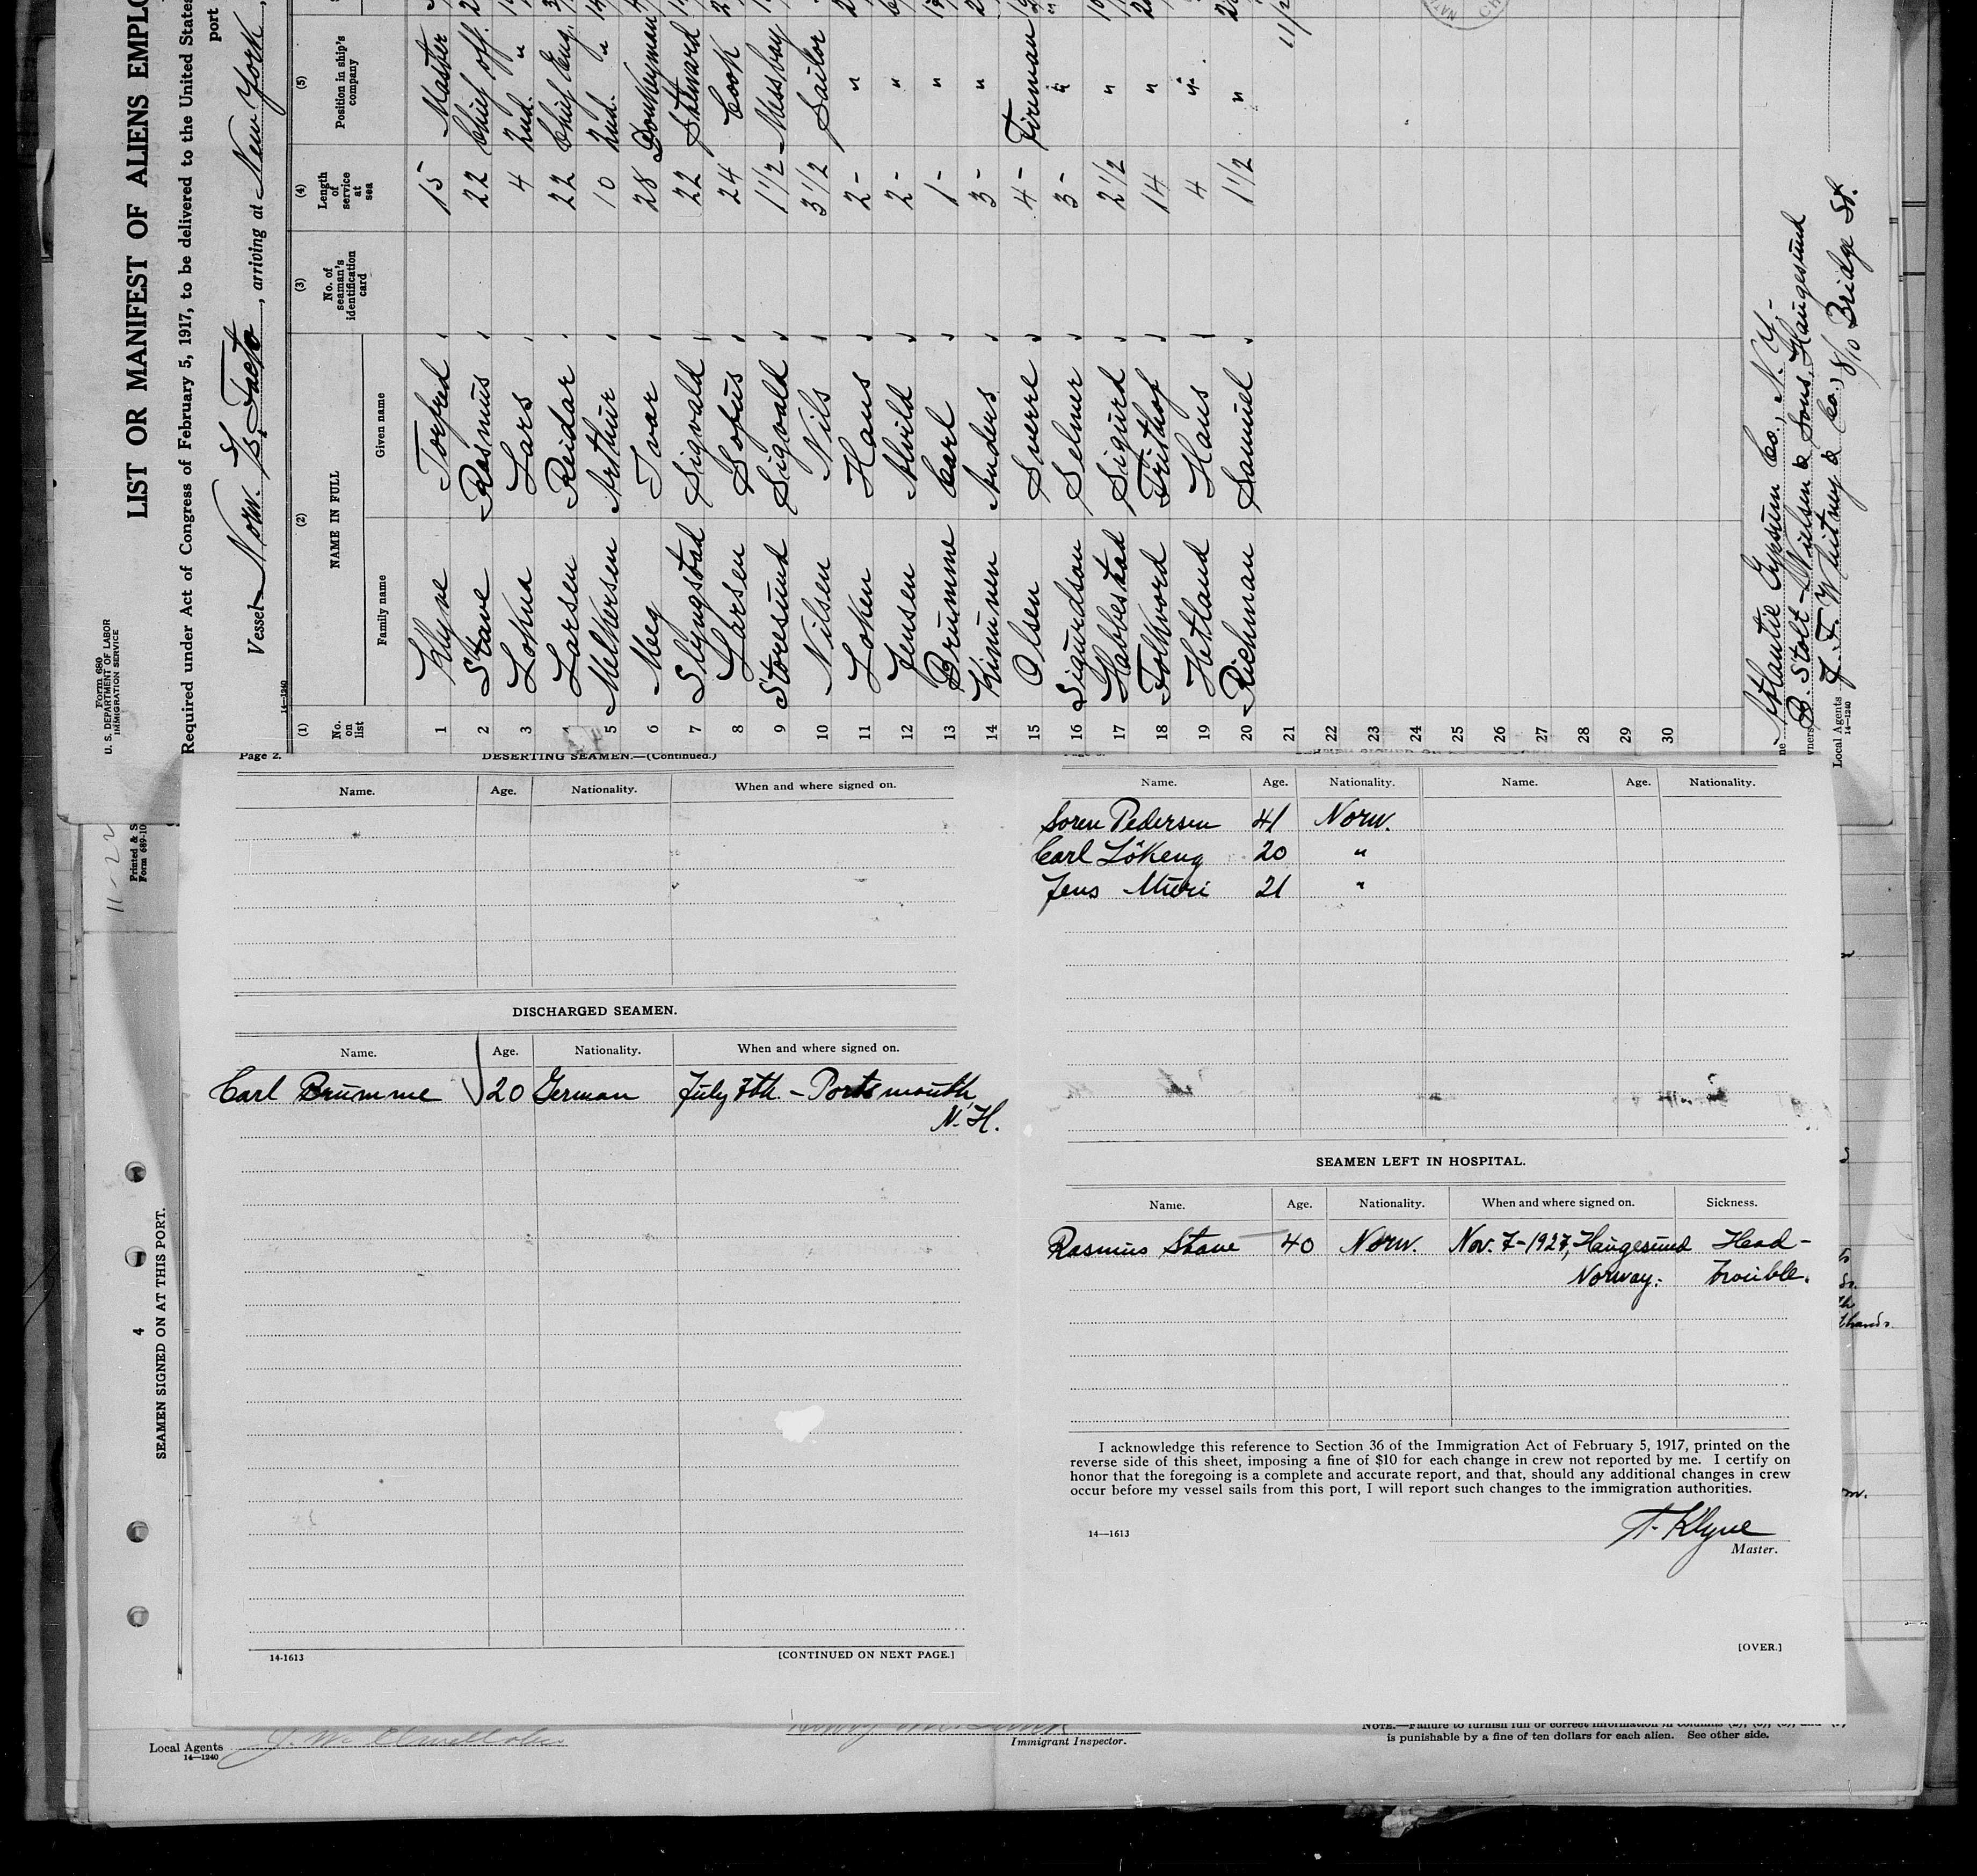 Form 680
U. S. DEPARTMENT OF LABOR
IMMIGRATION SERVICE
LIST OR MANIFEST OF ALIENS EMPLO
Required under Act of Congress of February 5, 1917, to be delivered to the United States
port
Vessel Norw. S/S. Facto, arriving at New York,
14—1240
(1) (2) (3) (4) (5)
No. on list NAME IN FULL No. of seaman's identification card Length of service at sea Position in ship's company
Family name Given name
1 Klyne Torfred 15 Master
2 Stave Rasmus 22 Chief off.
3 Lokna Lars 4 2nd. "
4 Larsen Reidar 22 Chief Eng.
5 Melkersen Arthur 10 2nd. "
6 Meeg Ivar 28 Donkeyman
7 Slyngstad Sigvald 22 Steward
8 Larsen Sofus 24 Cook
9 Storesund Sigvald 1 1/2 Messboy
10 Nilsen Nils 3 1/2 Sailor
11 Loken Hans 2 - "
12 Jensen Alvild 2 - "
13 Brumme Carl 1 - "
14 Kinunen Anders 3 - "
15 Olsen Sverre 4 - Fireman
16 Sigurdson Selmer 3 - "
17 Habbestad Sigurd 2 1/2 "
18 Folkvord Frithof 14 "
19 Hetland Hans 4 "
20 Richman Samuel 1 1/2 "
21
22
23
24
25
26
27
28
29
30
Atlantic Gypsum Co., N. Y.
wners B. Stolt-Nilsen & Sons, Haugesund
Local Agents J. F. Whitney & Co., 8/10 Bridge St.
14—1240
11-22
Printed & S
Form 689-10
4
SEAMEN SIGNED ON AT THIS PORT.
Page 2.
DESERTING SEAMEN.—(Continued.)
Name. Age. Nationality. When and where signed on.
DISCHARGED SEAMEN.
Name. Age. Nationality. When and where signed on.
Carl Brumme 20 German July 7th. - Portsmouth
N. H.
14-1613 [CONTINUED ON NEXT PAGE.]
Name. Age. Nationality. Name. Age. Nationality.
Soren Pedersen 41 Norw.
Carl Lökeng 20 "
Jens Muri 21 "
SEAMEN LEFT IN HOSPITAL.
Name. Age. Nationality. When and where signed on. Sickness.
Rasmus Stave 40 Norw. Nov. 7-1927, Haugesund Head-
Norway. trouble.
I acknowledge this reference to Section 36 of the Immigration Act of February 5, 1917, printed on the
reverse side of this sheet, imposing a fine of $10 for each change in crew not reported by me. I certify on
honor that the foregoing is a complete and accurate report, and that, should any additional changes in crew
occur before my vessel sails from this port, I will report such changes to the immigration authorities.
T. Klyne
14—1613
Master.
[OVER.]
Local Agents
14—1240
Immigrant Inspector.
NOTE.—Failure to furnish full or correct information in columns
is punishable by a fine of ten dollars for each alien. See other side.